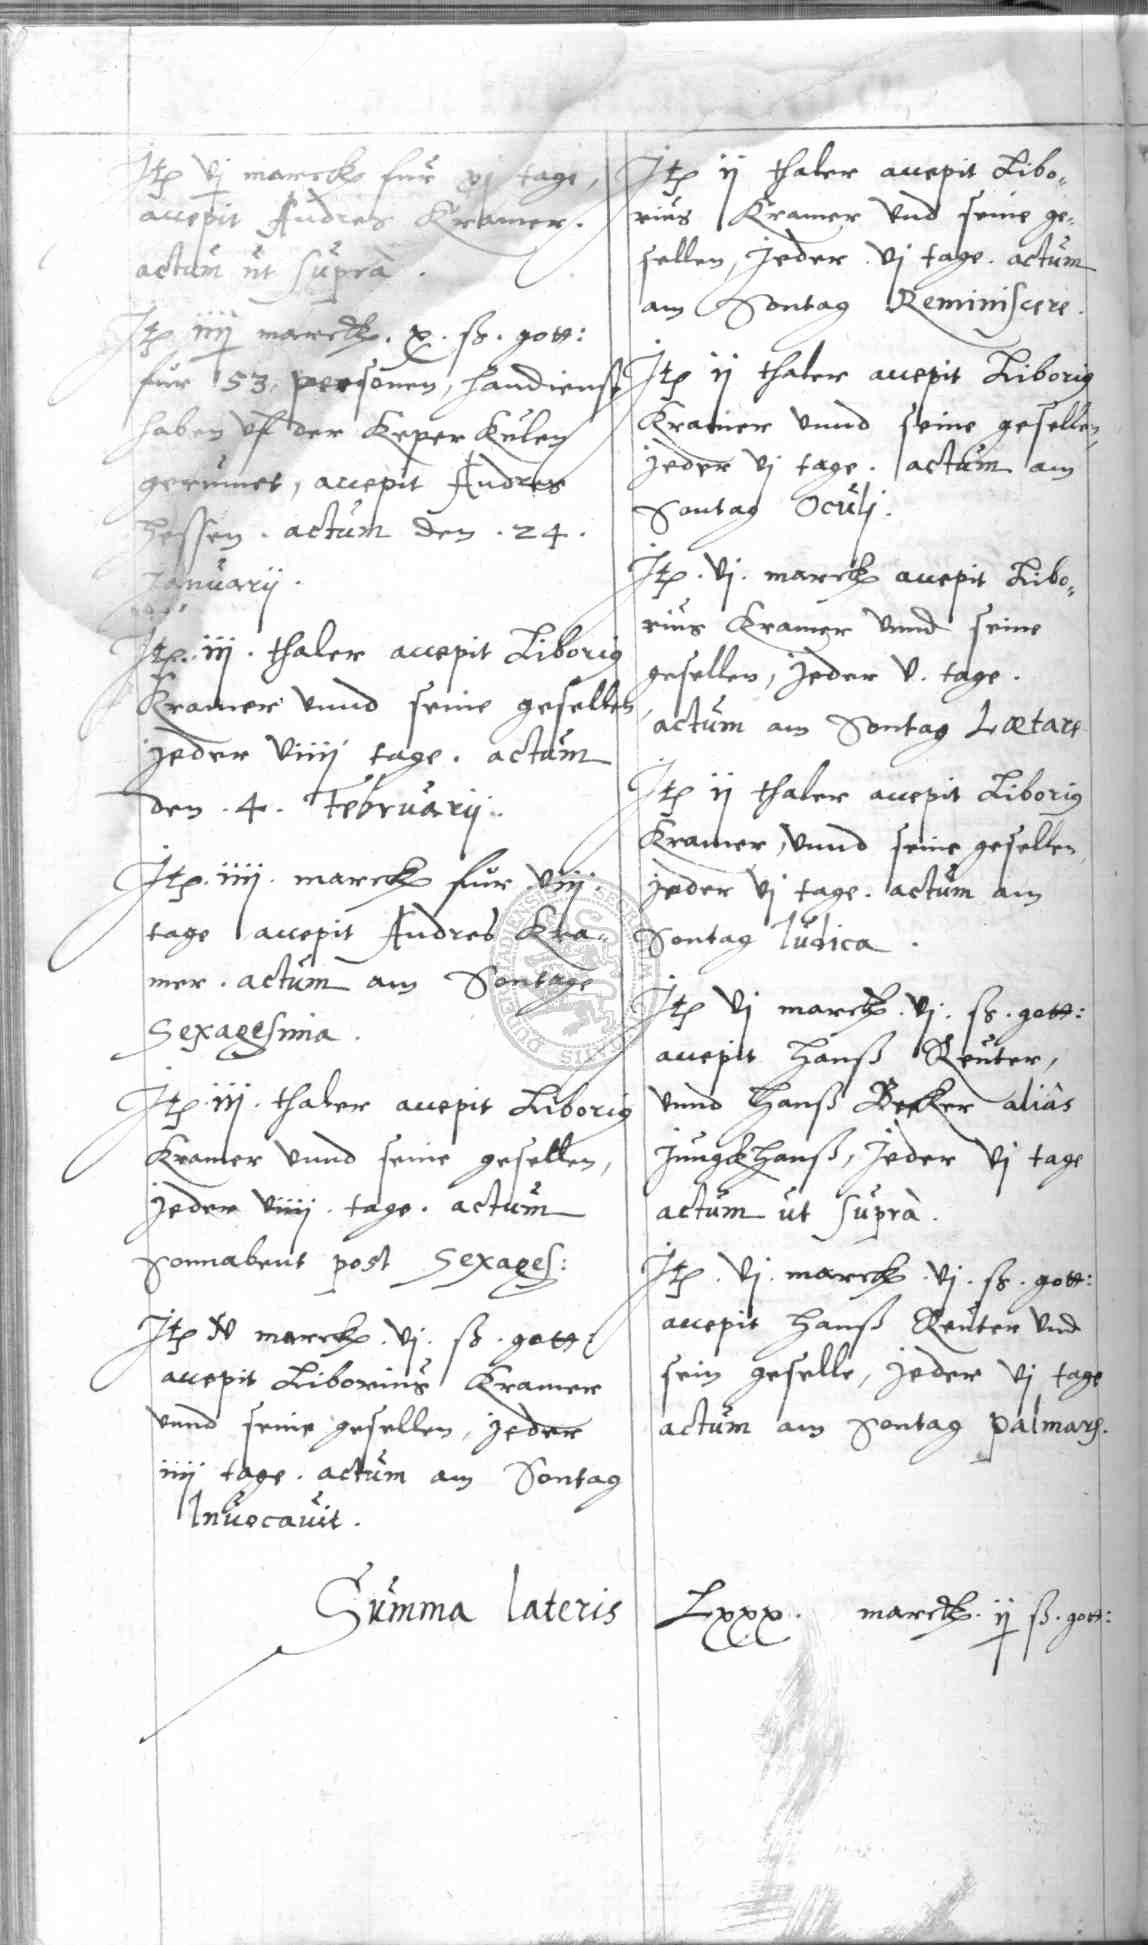 Itē vj marck fur xj tage,
accepit Andres Kramer.
actum ut supra.
Itē iiij marck. x. ß. gott:
fur 53 personen, handienst
haben uf der Keper Kulen
gerumet, accepit Andres
Hessen. actum den. 24.
Januarij.
Itē. iij. thaler accepit Liborig
Kramer vnnd seine gesellen
jeder viiij tage. actum
den. 4. Februarij.
Itē. iiij. marck fur viij.
tage accepit Andres Kra-
mer. actum am Sontage
Sexagesima.
Itē. iij. thaler accepit Liborig
Kramer vnnd seine gesellen,
jeder viiij. tage. actum
Sonnabent post Sexages:
Itē v marck. vj. ß. gott:
accepit Liborius Kramer
vnnd seine gesellen, jeder
iiij tage. actum am Sontag
Invocauit.
Itē ij thaler accepit Libo-
rius Kramer vnd seine ge-
sellen, jeder vj tage. actum
am Sontag Reminiscere.
Itē ij thaler accepit Liborig
Kramer vnnd seine gesellen,
jeder vj tage. actum am
Sontag Oculj.
Itē. vj. marck accepit Libo-
rius Kramer vnnd seine
gesellen, jeder v. tage.
actum am Sontag Lætare
Itē ij thaler accepit Liborig
Kramer, vnnd seine gesellen,
jeder vj tage. actum am
Sontag Iudica.
Itē vj marck. vj. ß. gott:
accepit Hanß Reuter,
vnnd Hanß Becker aliàs
Jungkhanß, jeder vj tage
actum ut suprà.
Itē. vj. marck. vj. ß. gott:
accepit Hanß Reuter vnd
sein geselle, jeder vj tage
actum am Sontag Palmarꝫ.
Summa lateris Lxxx. marck. ij ß. gott: